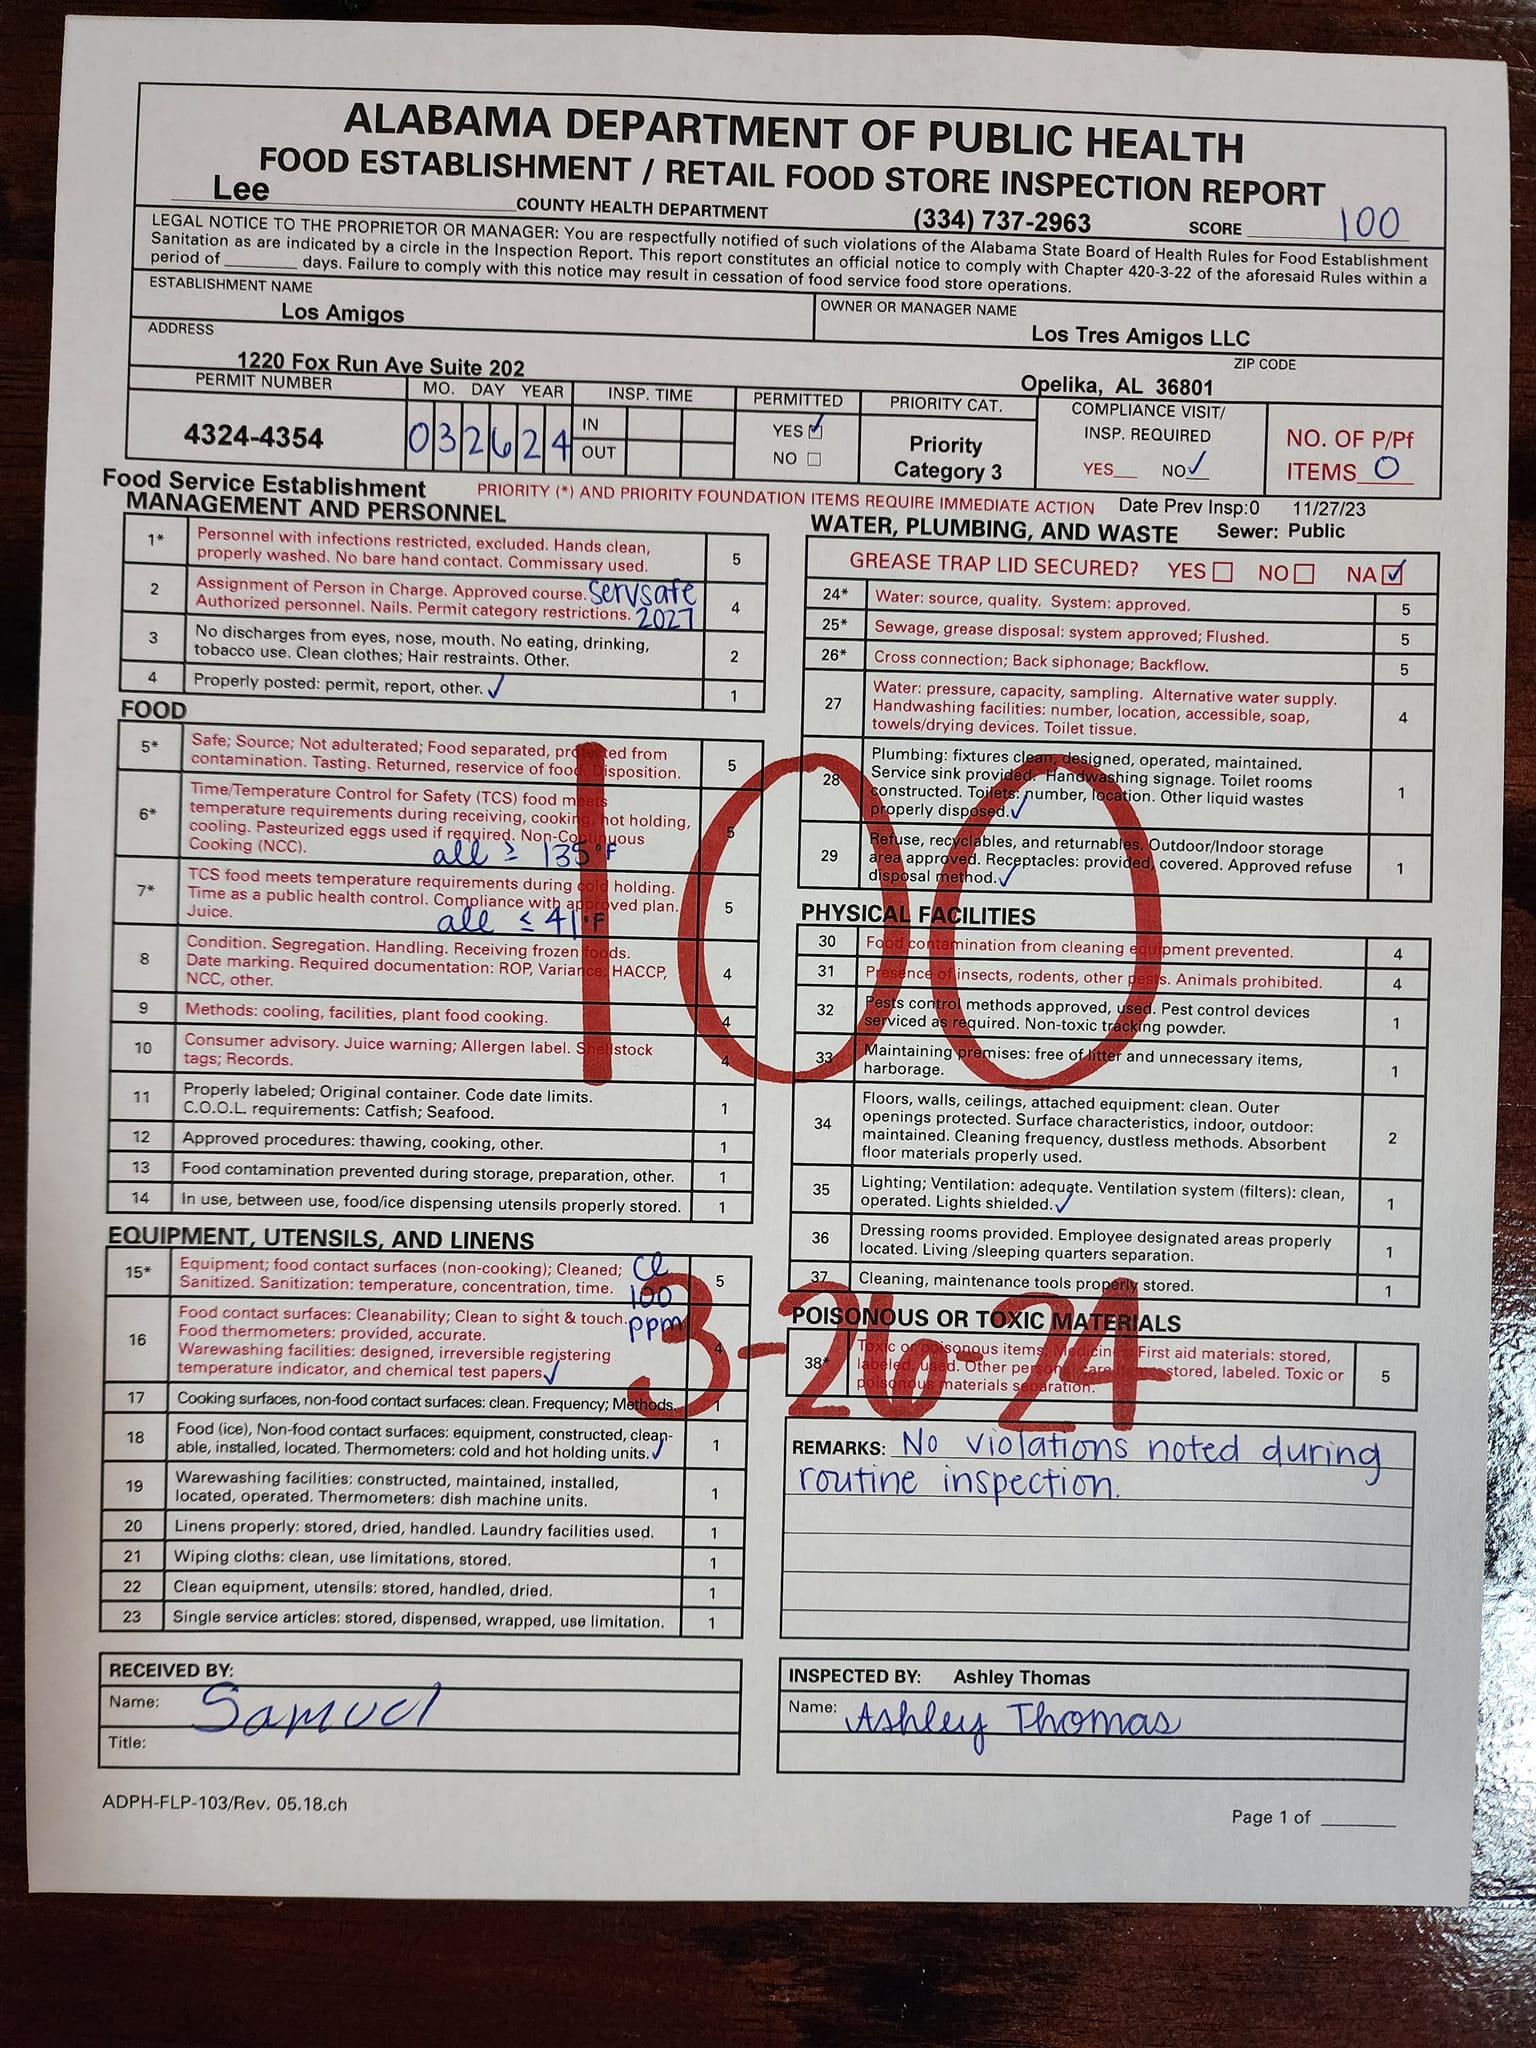 ALABAMA DEPARTMENT OF PUBLIC HEALTH
FOOD ESTABLISHMENT / RETAIL FOOD STORE INSPECTION REPORT
Lee COUNTY HEALTH DEPARTMENT (334) 737-2963 SCORE 100
LEGAL NOTICE TO THE PROPRIETOR OR MANAGER: You are respectfully notified of such violations of the Alabama State Board of Health Rules for Food Establishment
Sanitation as are indicated by a circle in the Inspection Report. This report constitutes an official notice to comply with Chapter 420-3-22 of the aforesaid Rules within a
period of ____ days. Failure to comply with this notice may result in cessation of food service food store operations.
ESTABLISHMENT NAME
Los Amigos
OWNER OR MANAGER NAME
Los Tres Amigos LLC
ADDRESS
1220 Fox Run Ave Suite 202
ZIP CODE
Opelika, AL 36801
PERMIT NUMBER
4324-4354
MO. DAY YEAR
032624
INSP. TIME
IN
OUT
PERMITTED
YES ☑
NO ☐
PRIORITY CAT.
Priority
Category 3
COMPLIANCE VISIT/
INSP. REQUIRED
YES__ NO✓
NO. OF P/Pf
ITEMS 0
Food Service Establishment PRIORITY (*) AND PRIORITY FOUNDATION ITEMS REQUIRE IMMEDIATE ACTION Date Prev Insp:0 11/27/23
MANAGEMENT AND PERSONNEL
1* Personnel with infections restricted, excluded. Hands clean,
properly washed. No bare hand contact. Commissary used. 5
2 Assignment of Person in Charge. Approved course. Servsafe
Authorized personnel. Nails. Permit category restrictions. 2027 4
3 No discharges from eyes, nose, mouth. No eating, drinking,
tobacco use. Clean clothes; Hair restraints. Other. 2
4 Properly posted: permit, report, other. ✓ 1
FOOD
5* Safe; Source; Not adulterated; Food separated, protected from
contamination. Tasting. Returned, reservice of food. Disposition. 5
6* Time/Temperature Control for Safety (TCS) food meets
temperature requirements during receiving, cooking, hot holding,
cooling. Pasteurized eggs used if required. Non-Continuous
Cooking (NCC). all ≥ 135°F 5
7* TCS food meets temperature requirements during cold holding.
Time as a public health control. Compliance with approved plan.
Juice. all ≤ 41°F 5
8 Condition. Segregation. Handling. Receiving frozen foods.
Date marking. Required documentation: ROP, Variance, HACCP,
NCC, other. 4
9 Methods: cooling, facilities, plant food cooking. 4
10 Consumer advisory. Juice warning; Allergen label. Shellstock
tags; Records. 4
11 Properly labeled; Original container. Code date limits.
C.O.O.L. requirements: Catfish; Seafood. 1
12 Approved procedures: thawing, cooking, other. 1
13 Food contamination prevented during storage, preparation, other. 1
14 In use, between use, food/ice dispensing utensils properly stored. 1
EQUIPMENT, UTENSILS, AND LINENS
15* Equipment; food contact surfaces (non-cooking); Cleaned; Cl
Sanitized. Sanitization: temperature, concentration, time. 100 5
ppm
16 Food contact surfaces: Cleanability; Clean to sight & touch.
Food thermometers: provided, accurate.
Warewashing facilities: designed, irreversible registering
temperature indicator, and chemical test papers. ✓ 4
17 Cooking surfaces, non-food contact surfaces: clean. Frequency; Methods. 1
18 Food (ice), Non-food contact surfaces: equipment, constructed, clean-
able, installed, located. Thermometers: cold and hot holding units. ✓ 1
19 Warewashing facilities: constructed, maintained, installed,
located, operated. Thermometers: dish machine units. 1
20 Linens properly: stored, dried, handled. Laundry facilities used. 1
21 Wiping cloths: clean, use limitations, stored. 1
22 Clean equipment, utensils: stored, handled, dried. 1
23 Single service articles: stored, dispensed, wrapped, use limitation. 1
WATER, PLUMBING, AND WASTE Sewer: Public
GREASE TRAP LID SECURED? YES ☐ NO ☐ NA ☑
24* Water: source, quality. System: approved. 5
25* Sewage, grease disposal: system approved; Flushed. 5
26* Cross connection; Back siphonage; Backflow. 5
27 Water: pressure, capacity, sampling. Alternative water supply.
Handwashing facilities: number, location, accessible, soap,
towels/drying devices. Toilet tissue. 4
28 Plumbing: fixtures clean, designed, operated, maintained.
Service sink provided. Handwashing signage. Toilet rooms
constructed. Toilets: number, location. Other liquid wastes
properly disposed. ✓ 1
29 Refuse, recyclables, and returnables. Outdoor/Indoor storage
area approved. Receptacles: provided, covered. Approved refuse
disposal method. ✓ 1
PHYSICAL FACILITIES
30 Food contamination from cleaning equipment prevented. 4
31 Presence of insects, rodents, other pests. Animals prohibited. 4
32 Pests control methods approved, used. Pest control devices
serviced as required. Non-toxic tracking powder. 1
33 Maintaining premises: free of litter and unnecessary items,
harborage. 1
34 Floors, walls, ceilings, attached equipment: clean. Outer
openings protected. Surface characteristics, indoor, outdoor:
maintained. Cleaning frequency, dustless methods. Absorbent
floor materials properly used. 2
35 Lighting; Ventilation: adequate. Ventilation system (filters): clean,
operated. Lights shielded. ✓ 1
36 Dressing rooms provided. Employee designated areas properly
located. Living /sleeping quarters separation. 1
37 Cleaning, maintenance tools properly stored. 1
POISONOUS OR TOXIC MATERIALS
38* Toxic or poisonous items; Medicines; First aid materials: stored,
labeled, used. Other personal care items stored, labeled. Toxic or
poisonous materials separation. 5
100
3-26-24
REMARKS: No violations noted during
routine inspection.
RECEIVED BY:
Name: Samuel
Title:
INSPECTED BY: Ashley Thomas
Name: Ashley Thomas
ADPH-FLP-103/Rev. 05.18.ch
Page 1 of ____